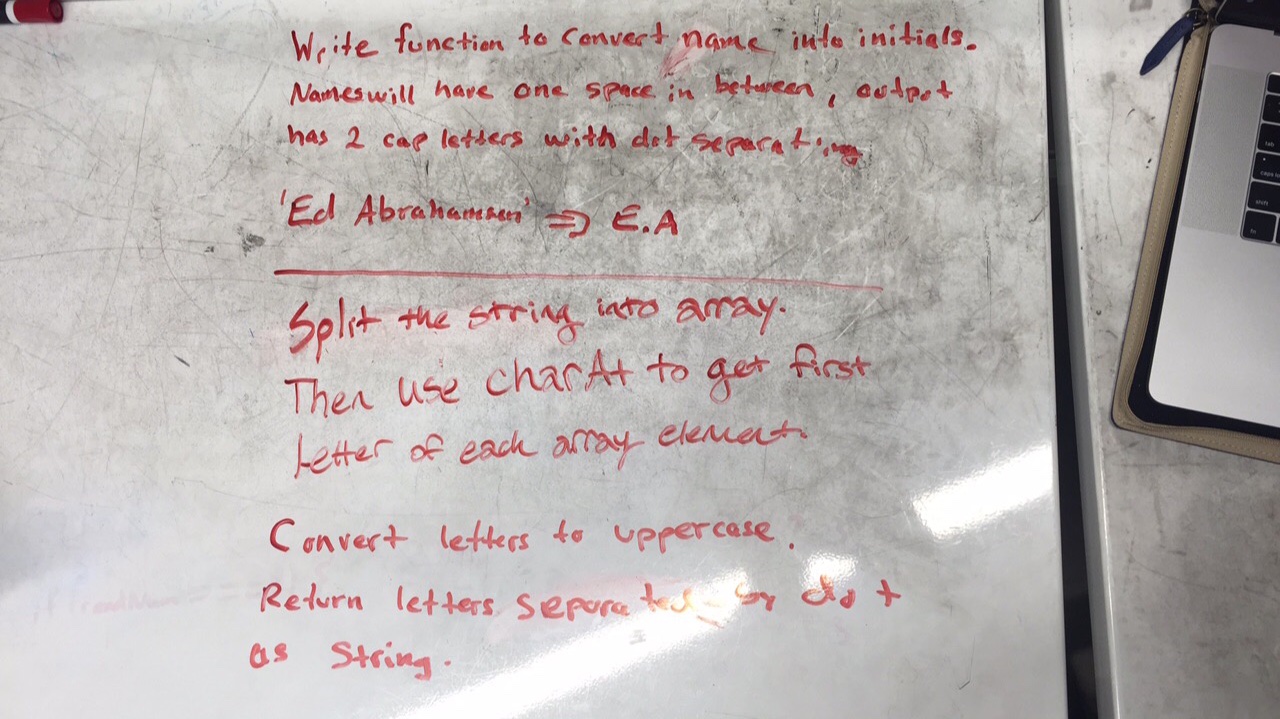 Write function to convert name into initials.
Names will have one space in between, output
has 2 cap letters with dot separating
'Ed Abrahamsen' => E.A
Split the string into array.
Then use charAt to get first
Letter of each array element.
Convert letters to uppercase.
Return letters separated by dot
as String.